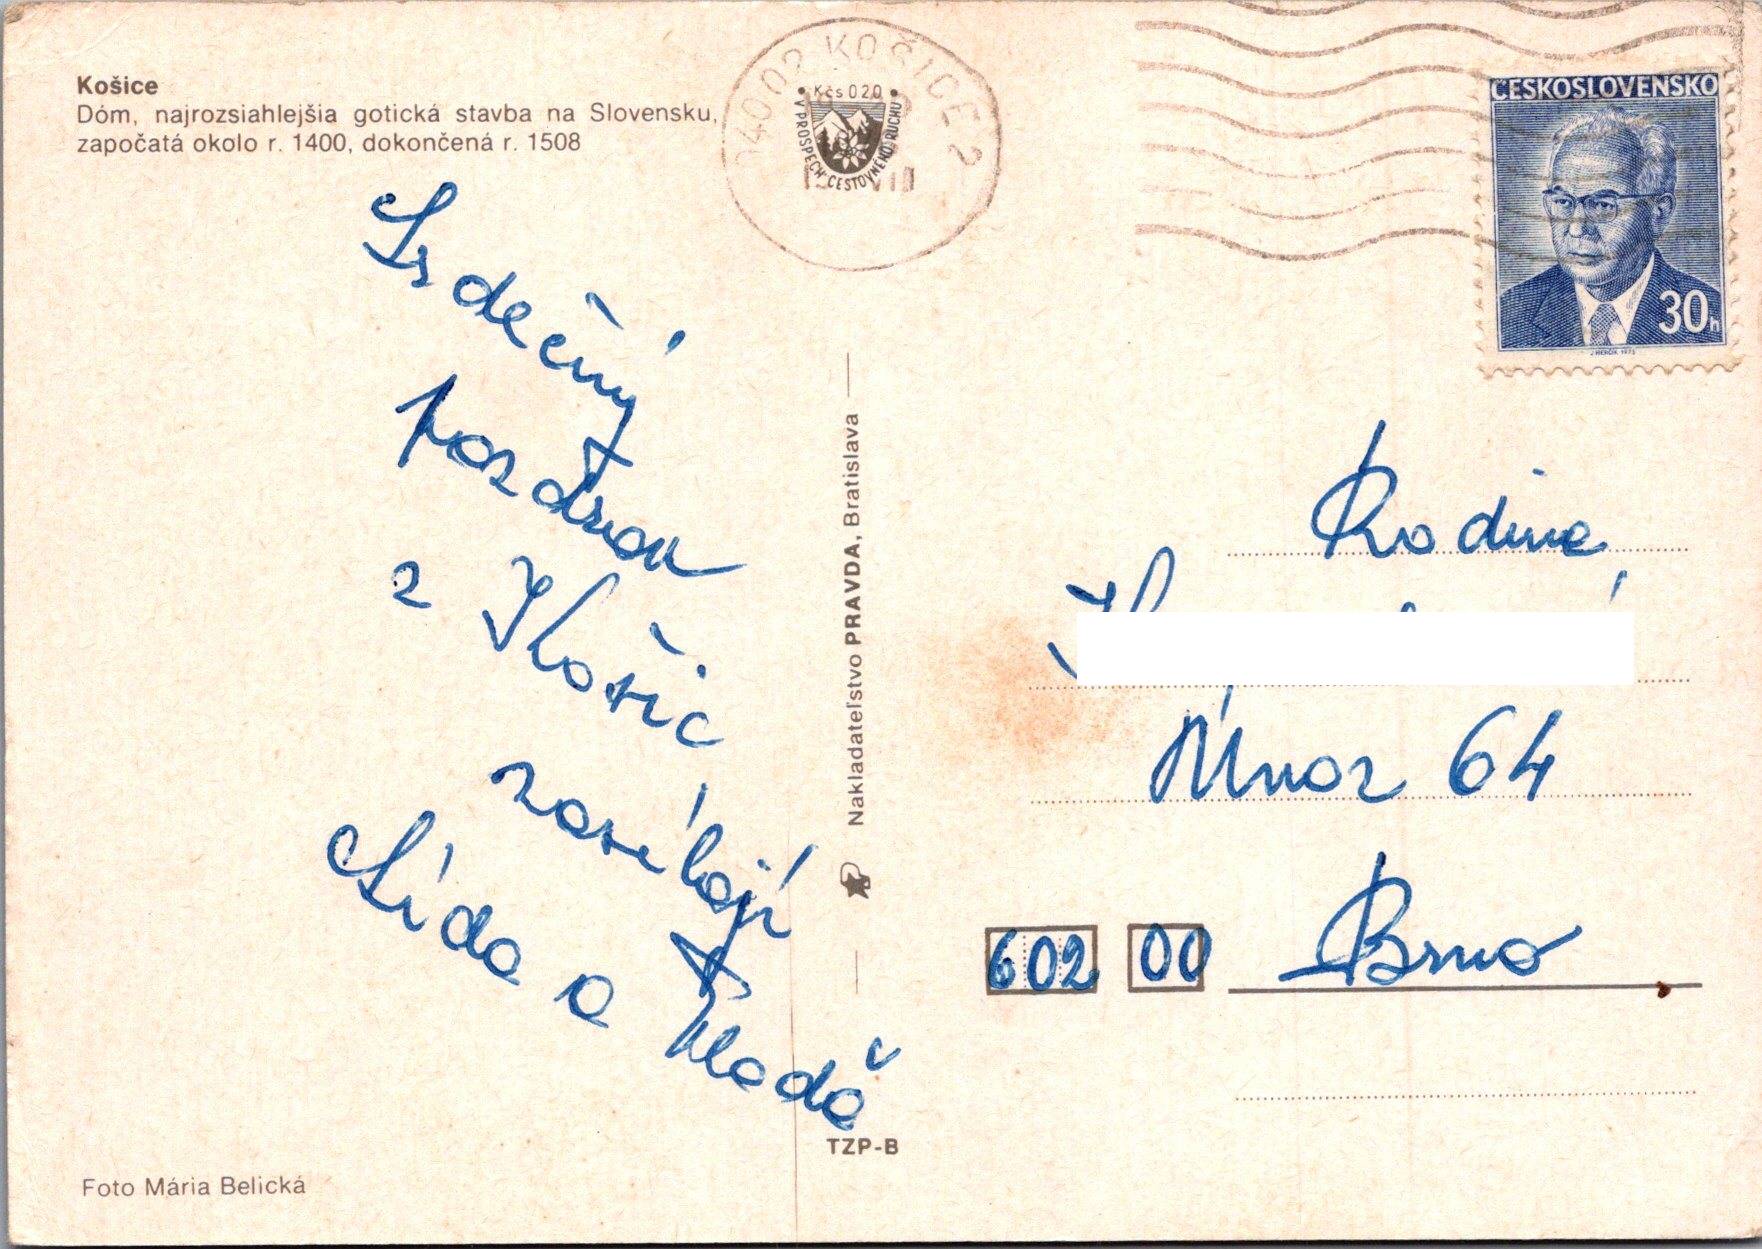 Košice
Dóm, najrozsiahlejšia gotická stavba na Slovensku,
započatá okolo r. 1400, dokončená r. 1508
04002 KOŠICE 2
Kčs 020
V PROSPECH CESTOVNÉHO RUCHU
ČESKOSLOVENSKO
30h
J HERČÍK 1975
Srdečný
pozdrav
z Košic
zasílají
Lída a
Vladå
Nakladateľstvo PRAVDA, Bratislava
Rodina
Úvoz 64
602 00 Brno
TZP-B
Foto Mária Belická